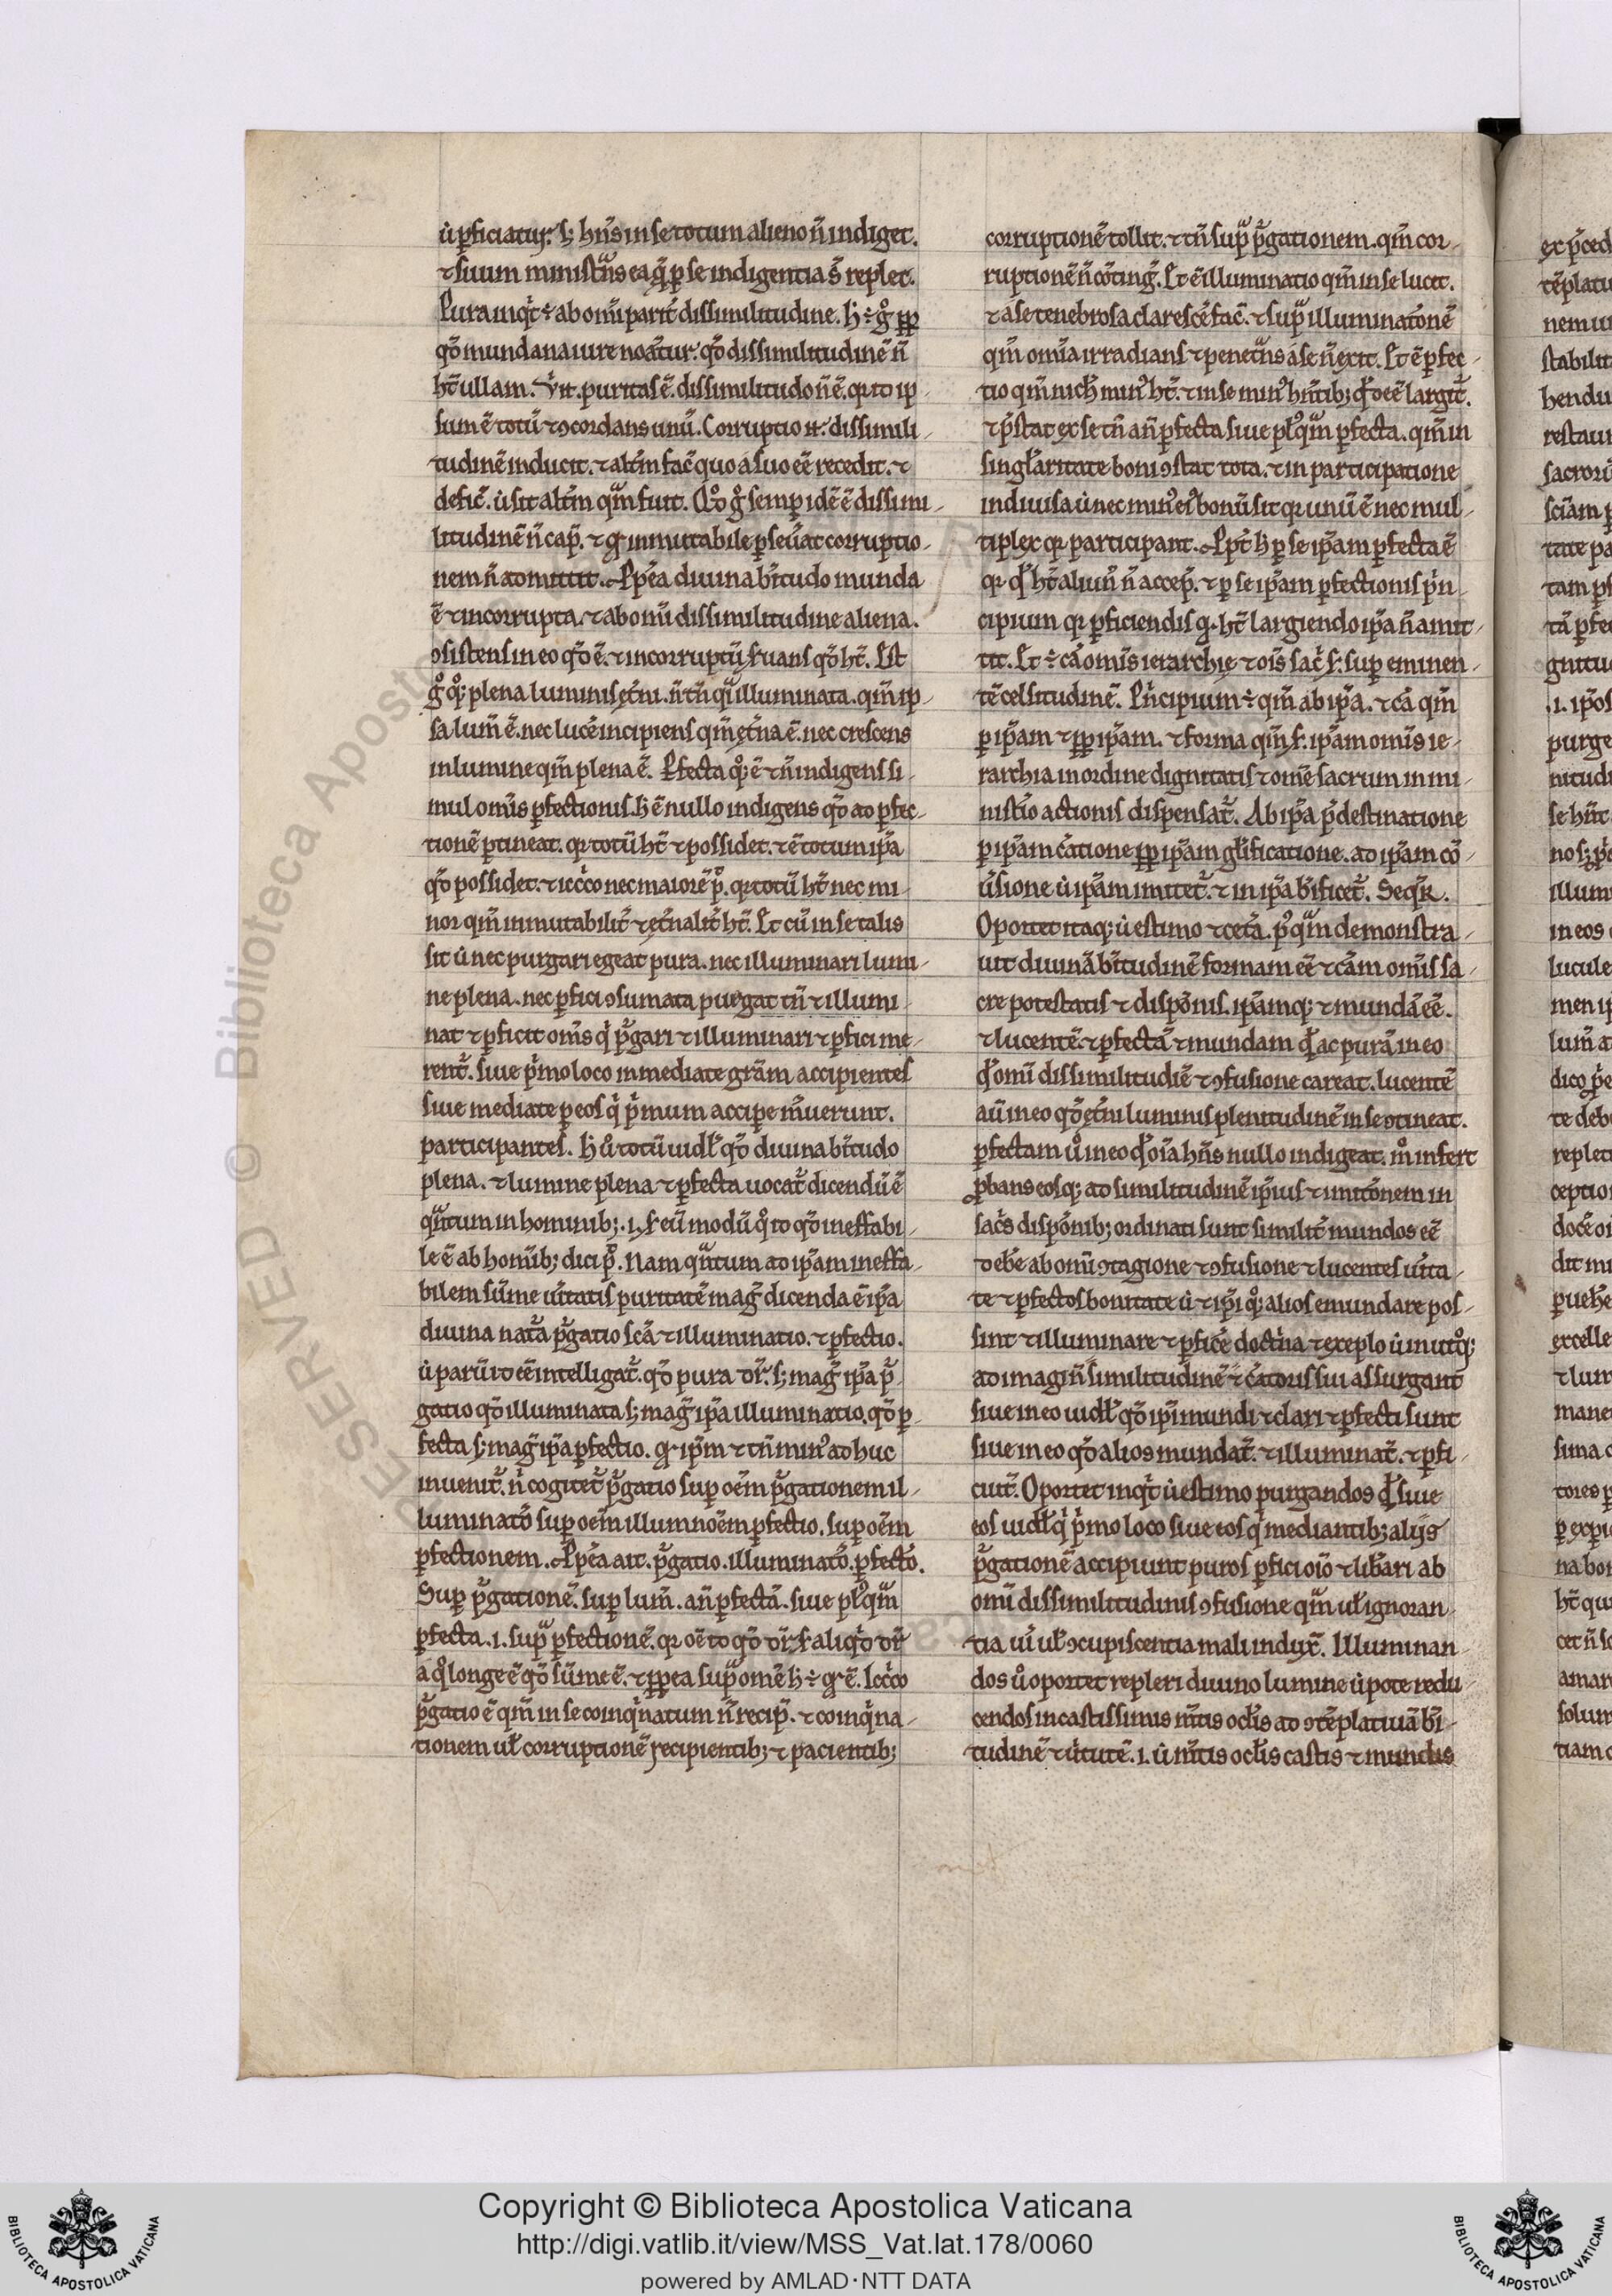 ut ꝑficiatur. s; hn̄s in se totum alieno n̄ indiget.
⁊ suum ministrans ea q̄ ꝑ se indigentia s̄t replet.
Pura inqͥt ÷ ab om̄i parit̄ dissimilitudine. h̄ ÷ gͦ ꝓp̄
qd̄ mundana iure notatur. qd̄ dissimilitudinē n̄
ht̄ ullam. puritas ē. dissimilitudo n̄ ē. qr id ip
sum ē totū ⁊ ꝯcordans unū. Corruptio u̅. dissimili
tudinē inducit. ⁊ alt̄m fac̄ quo a suo eē recedit. ⁊
defic̄. ut sit alt̄m qᵃm fuit. Qd̄ gͦ semꝑ idē ē dissimi
litudinē n̄ cap̄. ⁊ qr inmutabile ꝑseu̅at corruptio
nem n̄ admittit. Propt̄ea diuina bt̄itudo munda
ē ⁊ incorrupta. ⁊ ab om̄i dissimilitudine aliena.
ꝯsistens in eo qd̄ ē. ⁊ incorruptū s̄uans qd̄ ht̄. Est
gͦ qͦꝫ plena luminis et̄ni. n̄ tn̄ qͣ illuminata. qm̄ ip
sa lum̄ ē. nec lucē incipiens qm̄ et̄na ē. nec crescens
in lumine qm̄ plena ē. Ꝑfecta qͦꝫ ē ⁊ n̄ indigens si
mul om̄is ꝑfectionis. h̄ ē nullo indigens qd̄ ad ꝑfec
tionē ꝑtineat. qr totū ht̄ ⁊ possidet. ⁊ ē totum ip̄a
qd̄ possidet. ⁊ iccͦco nec maiorē p̄. qr totū ht̄ nec mi
nor qm̄ inmutabilit̄ ⁊ et̄nalit̄ ht̄. Et cū in se talis
sit ut nec purgari egeat pura. nec illuminari lumi
ne plena. nec ꝑfici ꝯsumata purgat tn̄ ⁊ illumi
nat ⁊ ꝑficit om̄s qͥ pͥgari ⁊ illuminari ⁊ ꝑfici me
rent̄. siue pͥmo loco inmediate gr̄am accipientes
siue mediate ꝑ eos qͥ pͥmum accipe m̄uerunt.
participantes. h̄ uͦ totū uidel̄ qd̄ diuina bt̄itudo
plena. ⁊ lumine plena ⁊ ꝑfecta uocat̄ dicendū ē
qᵃntum in hominibꝫ .i. s̄ eū modū qͦ id qd̄ ineffabi
le ē ab hom̄ibꝫ dici p̄. Nam qᵃntum ad ip̄am ineffa
bilem sūme u̅itatis puritatē mag̅ dicenda ē ip̄a
diuina nat̄a pͥgatio sc̄a ⁊ illuminatio. ⁊ ꝑfectio.
ut parū id eē intelligat̄. qd̄ pura dr̄. s; mag̅ ip̄a pͥ
gatio qd̄ illuminata s; mag̅ ip̄a illuminatio. qd̄ ꝑ
fecta s; mag̅ ip̄a ꝑfectio. qr ip̄m ⁊ tn̄ min̄ adhuc
inuenit̄. n̄ cogitet̄ pͥgatio suꝑ oēm pͥgationem il
luminatō suꝑ oēm illumnoēm ꝑfectio. suꝑ oēm
ꝑfectionem. Propt̄ea ait. pͥgatio. illuminatō. ꝑfectō.
Suꝑ pͥgationē. suꝑ lum̄. an̄ ꝑfectā. siue pl̄ qᵃm
ꝑfecta .i. supᵃ ꝑfectionē. qr oē id qd̄ dr̄. s̄ aliqͥd dr̄
a qͦ longe ē qd̄ sūme ē. ⁊ ꝓpt̄ea supᵃ omē h̄ ÷ qr ē. Iccͦco
pͥgatio ē qm̄ in se coinqͥnatum n̄ recip̄. ⁊ coinqͥna
tionem ul̄ corruptionē recipientibꝫ ⁊ pacientibꝫ
corruptionē tollit. ⁊ tn̄ supᵃ pͥgationem. qm̄ cor
ruptionē n̄ ꝯtinḡ. Et ē illuminatio qm̄ in se lucet.
⁊ a se tenebrosa claresc̄e fac̄. ⁊ supᵃ illuminatōnē
qm̄ om̄ia irradians ⁊ penetrans a se n̄ exit. Et ē ꝑfec
tio qm̄ nich̄ min̄ ht̄. ⁊ in se min̄ hn̄tibꝫ qd̄ deē largit̄.
⁊ p̄stat ex se tn̄ an̄ ꝑfecta siue pl̄ qᵃm ꝑfecta. qm̄ in
singl̄aritate boni ꝯstat tota. ⁊ in participatione
indiuisa ut nec min̄ ei bonū sit qr unū ē nec mul
tiplex qr participant. Propt̄ h̄ ꝑ se ip̄am ꝑfecta ē
qr qd̄ ht̄ aliun̄ n̄ accep̄. ⁊ ꝑ se ip̄am ꝑfectionis pͥn
cipium qr ꝑficiendis q. ht̄ largiendo ip̄a n̄ amit
tit. Et ÷ cā om̄is ierarchie ⁊ oīs sac̄ s: suꝑ eminen
tē celsitudinē. Pͥncipium ÷ qm̄ ab ip̄a. ⁊ cā qm̄
ꝑ ip̄am ⁊ ꝓpt̄ ip̄am. ⁊ forma qm̄ s̄. ip̄am om̄is ie
rarchia in ordine dignitatis ⁊ om̄e sacrum in mi
nist̄io actionis dispensat̄. Ab ip̄a p̄destinatione
ꝑ ip̄am c̄atione ꝓpt̄ ip̄am gl̄ificatione. ad ip̄am cō
u̅sione ut ip̄am imitet̄. ⁊ in ip̄a bt̄ificet̄. Seqr̄.
Oportet itaqꝫ ut estimo ⁊ cet̄a. pͦqᵃm demonstra
uit diuinā bt̄itudinē formam eē ⁊ cām om̄is sa
cre potestatis ⁊ dispōnis. ip̄amqꝫ ⁊ mundā eē.
⁊ lucentē. ⁊ ꝑfectā ⁊ mundam qͥd ac purā in eo
qd̄ om̄i dissimilitudiē ⁊ ꝯfusione careat. lucentē
au̅ in eo qd̄ et̄ni luminis plenitudinē in se ꝯtineat.
ꝑfectam uͦ in eo qd̄ oīa hn̄s nullo indigeat. mͦ infert
ꝓbans eosqꝫ ad similitudinē ip̄ius ⁊ unitōnem in
sac̄s dispōnibꝫ ordinati sunt similit̄ mundos eē
deb̄e ab om̄i ꝯtagione ⁊ ꝯfusione ⁊ lucentes u̅ita
te ⁊ ꝑfectos bonitate ut ⁊ ip̄i qͦꝫ alios emundare pos
sint ⁊ illuminare ⁊ ꝑfic̄e doct̄na ⁊ exeplo ut inuitqͦꝫ
ad imagin̄ similitudinē ⁊ c̄atoris sui assurgant
siue in eo uidel̄ qd̄ ip̄i mundi ⁊ clari ⁊ ꝑfecti sunt
siue in eo qd̄ alios mundat̄. ⁊ illuminat̄. ⁊ ꝑfi
ciut̄. Oportet inqͥt ut estimo purgandos qd̄ siue
eos uidel̄ qͥ pͥmo loco siue eos qͥ mediantibꝫ alijs
pͥgationē accipiunt puros ꝑfici oīo ⁊ lib̄ari ab
om̄i dissimilitudinis ꝯfusione qᵃm ul̄ ignoran
tia ui̅ ul̄ ꝯcupiscentia mali induxͭ. Illuminan
dos uͦ oportet repleri diuino lumine ut pote redu
cendos in castissimis m̄tis ocl̄is ad ꝯtēplatiuā bt̄i
tudinē ⁊ u̅tutē .i. ut m̄tis ocl̄is castis ⁊ mundis
Copyright © Biblioteca Apostolica Vaticana
http://digi.vatlib.it/view/MSS_Vat.lat.178/0060
powered by AMLAD·NTT DATA